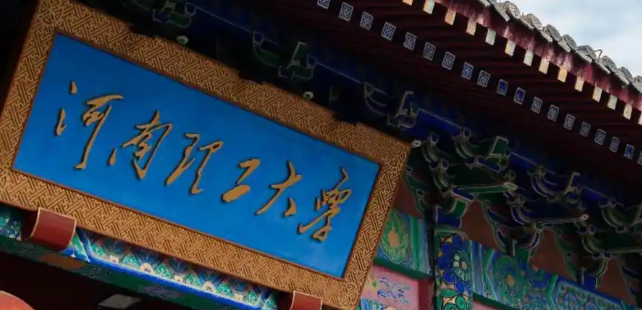 河南理工大学